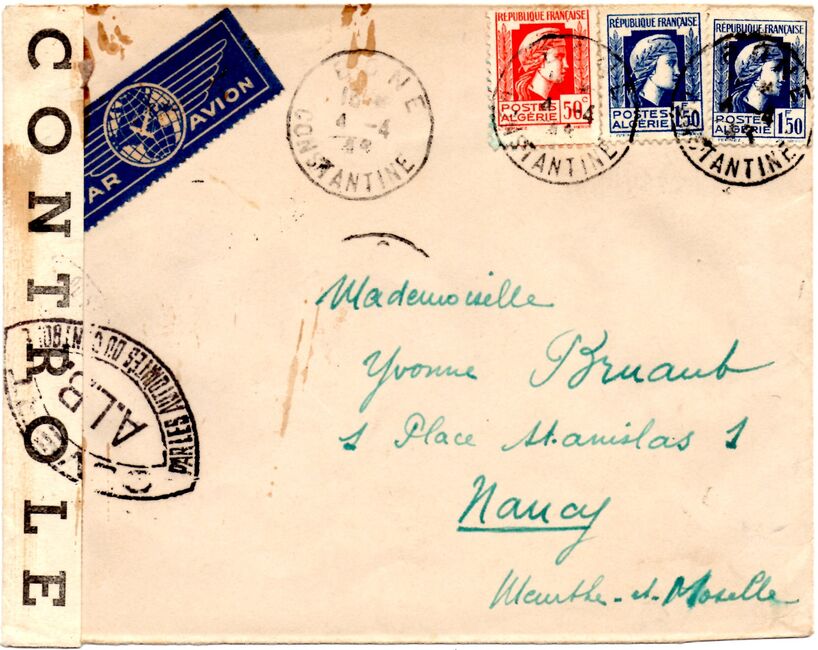 CONTROLE
PAR AVION
RÉPUBLIQUE FRANÇAISE
POSTES
ALGÉRIE
50c
RÉPUBLIQUE FRANÇAISE
POSTES
ALGÉRIE
1F50
RÉPUBLIQUE FRANÇAISE
POSTES
ALGÉRIE
1F50
CONSTANTINE
4-4
CONSTANTINE
CONSTANTINE
PAR LES AUTORITÉS DU CONTROLE
A.L.B
Mademoiselle
Yvonne Bruault
1 Place Stanislas 1
Nancy
Meurthe-et-Moselle